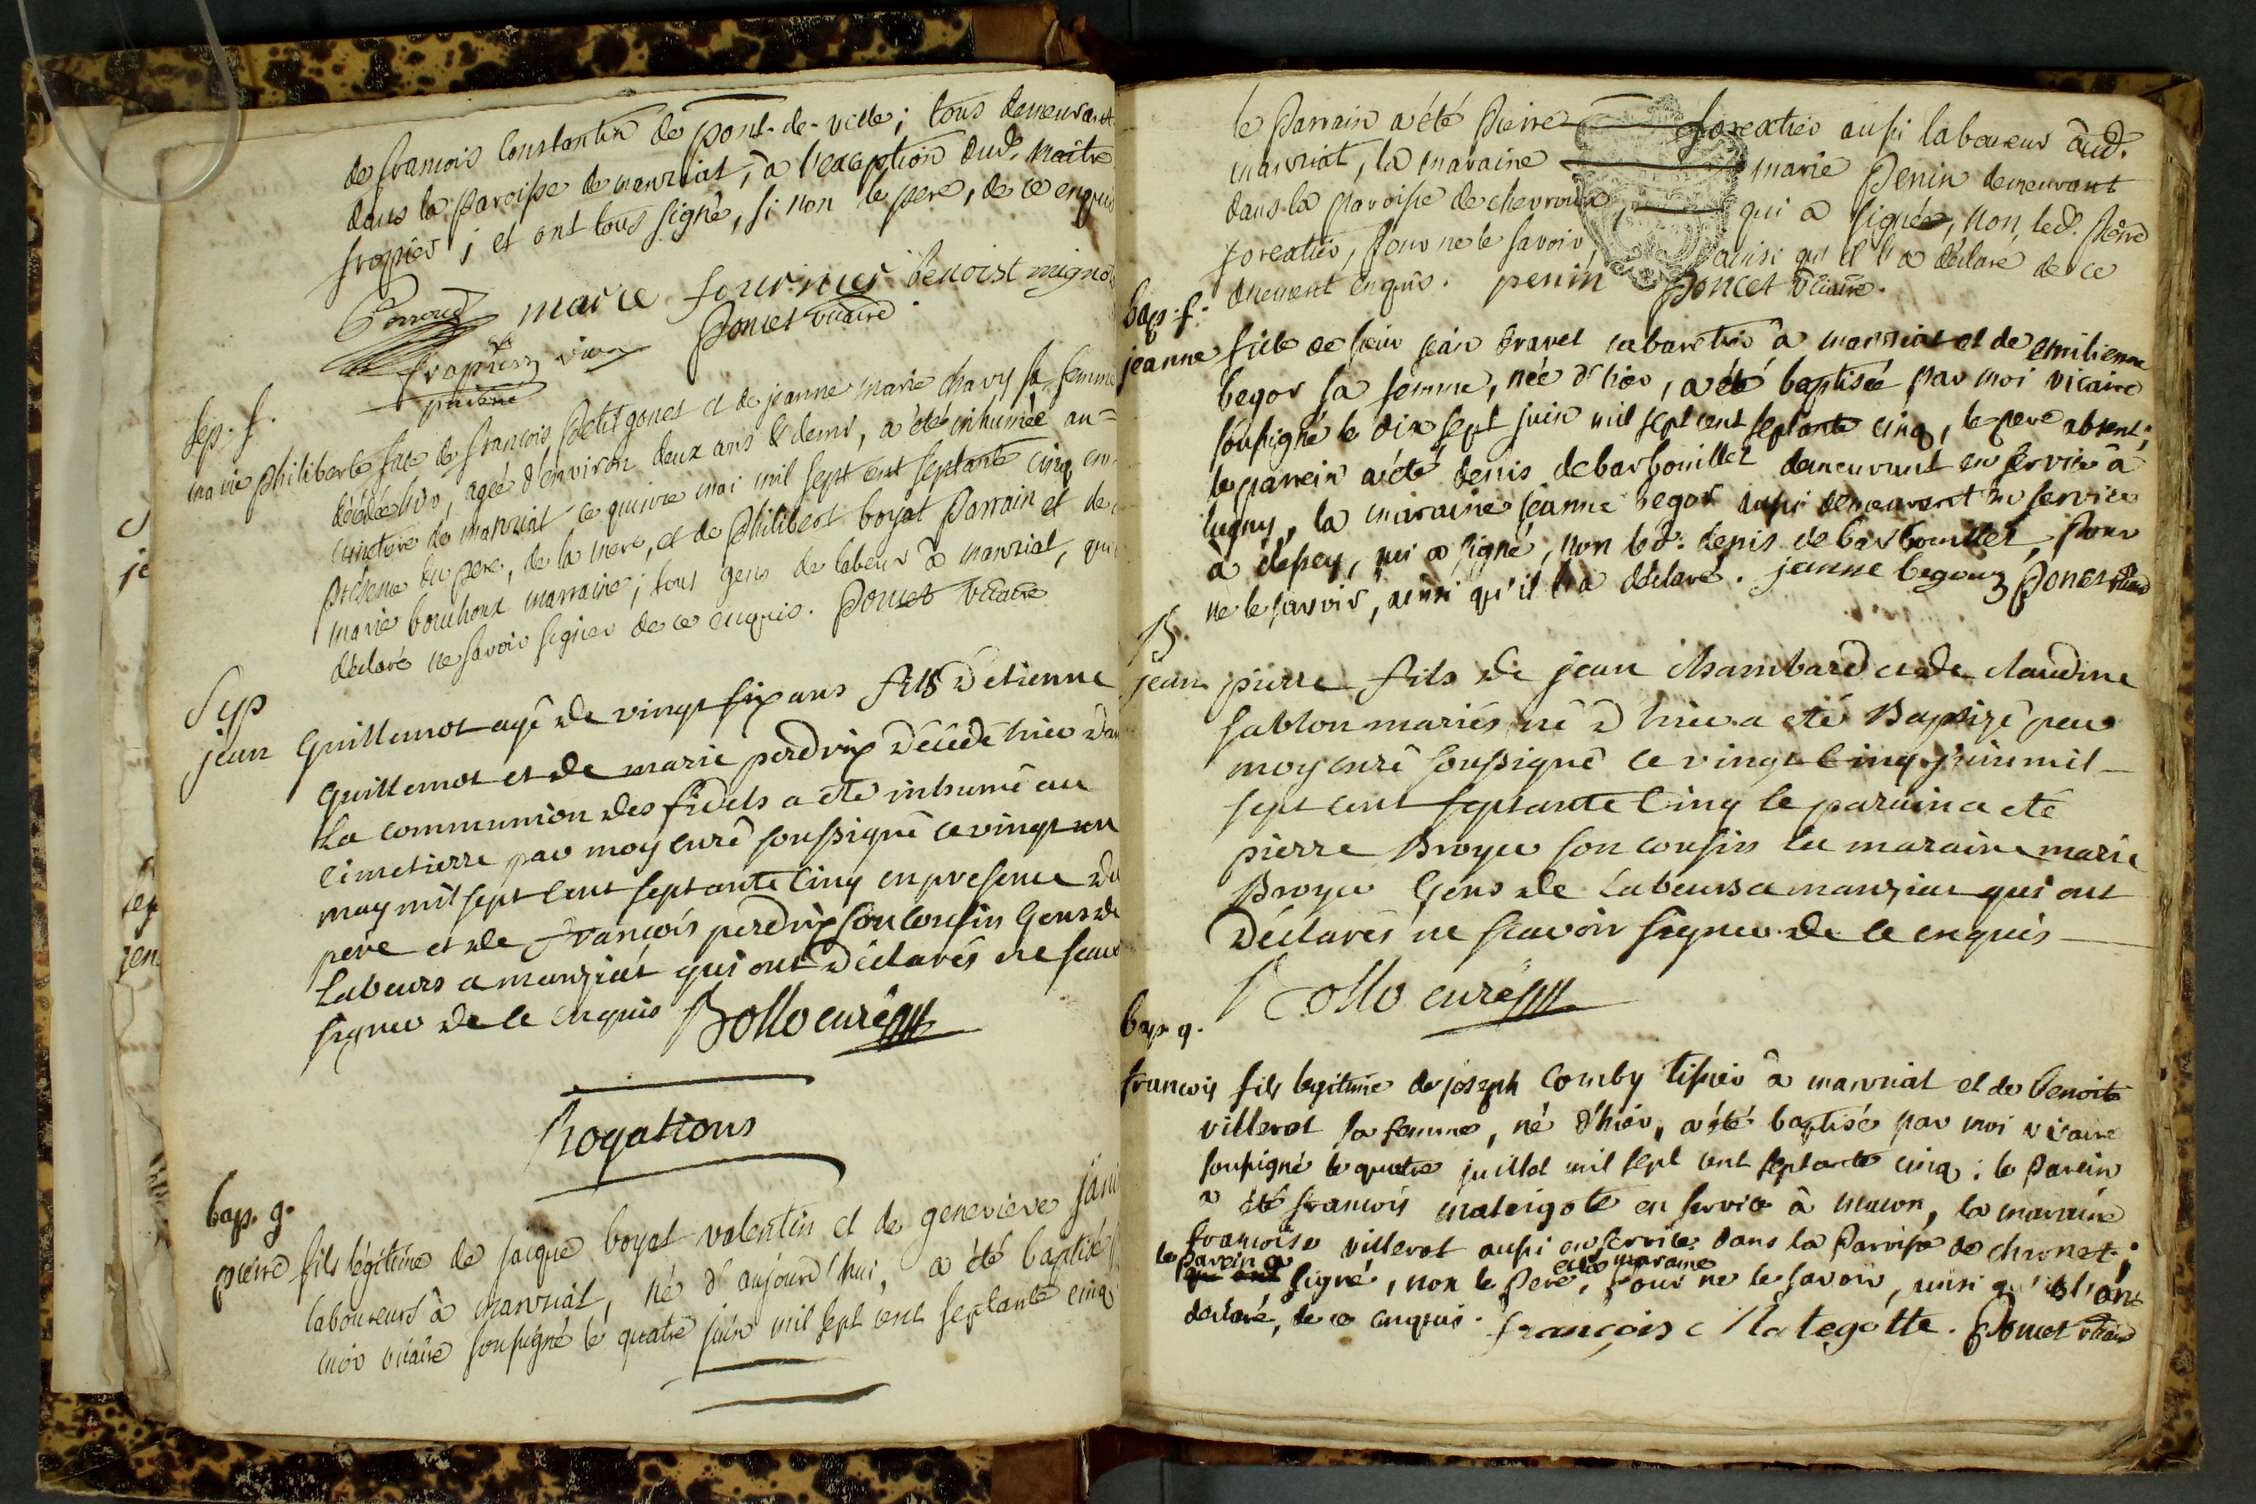 de francois Constantin de pont-de-velle; tous demeurant
dans la paroisse de manziat, à l'exception dud. maitre
fropier; et ont tous signé, si non le pere, de ce enquis
marie fournier benoist migno
Poncet vicaire
sep. f.
marie philiberte fille de francois petit gonet et de jeanne marie chavy sa femme
décédée hier, agée d'environ deux ans & demi, a été inhumée au
cimetiere de manziat ce quinze mai mil sept cent septante cinq en
présence du pere, de la mere, et de philibert boyat parrain et de
marie bouchoux marraine; tous gens de labeur à manziat, qui
déclaré ne savoir signer de ce enquis. Poncet vicaire
Sep
jean Guillemot agé de vingt six ans fils d'etienne
Guillemot et de marie perdrix décédé hier dan
la communion des fidels a été inhumé au
cimetierre par moy curé soussigné ce vingt un
may mil sept cent septante cinq en presence du
pere et de françois perdrix son cousin Gens de
Labeurs a manziat qui ont déclarés ne scavoir
signer de ce enquis Bollo curé
Rogations
bap. g.
pierre fils légitime de jacque boyat valentin et de genevieve jani
laboureurs à manziat, né d'aujourd'hui, a été baptisé
moi vicaire soussigné le quatre juin mil sept cent septante cinq
le parrain a été pierre foreatier aussi laboureur aud.
manziat, la maraine marie penin demeurant
dans la paroisse de chevroux, qui a signée, non led. pierre
foreatier, pour ne le savoir ainsi qu'il l'a déclaré de ce
duement enquis. penin Poncet vicaire.
bap. f.
jeanne fille de sieur jean dravet cabaretier à manziat et de emilienne
begos sa femme, née d'hier, a été baptisée par moi vicaire
soussigné le dix sept juin mil sept cent septante cinq, le pere absent;
le parrein a été denis debarbouillet demeurant en service à
lugny, la maraine jeanne begos aussi demeurant en service
à clessey, qui a signé, non led. denis debarbouillet, pour
ne le savoir, ainsi qu'il l'a déclaré. jeanne begoz Poncet vicaire
B.
jean pierre fils de jean chambard et de claudine
sablon mariés né d'hier a été Baptizé par
moy curé soussigné ce vingt cinq juin mil
sept cent septante cinq le parain a été
pierre Broyer son cousin la maraine marie
Broyer Gens de Labeurs a manziat qui ont
Déclarés ne scavoir signer de ce enquis
Bollo curé
bap. g.
francois fils legitime de joseph Comby tissier à manziat et de benoite
villerot sa femme, né d'hier, a été baptisé par moi vicaire
soussigné le quatre juillet mil sept cent septante cinq; le parein
a été francois mategote en service à macon, la maraine
francoise villerot aussi en service dans la paroisse de charnet;
le parein a
et la maraine
signé, non le pere, pour ne le savoir, ainsi qu'ils l'ont
declaré, de ce enquis. françois Mategotte. Poncet vicaire